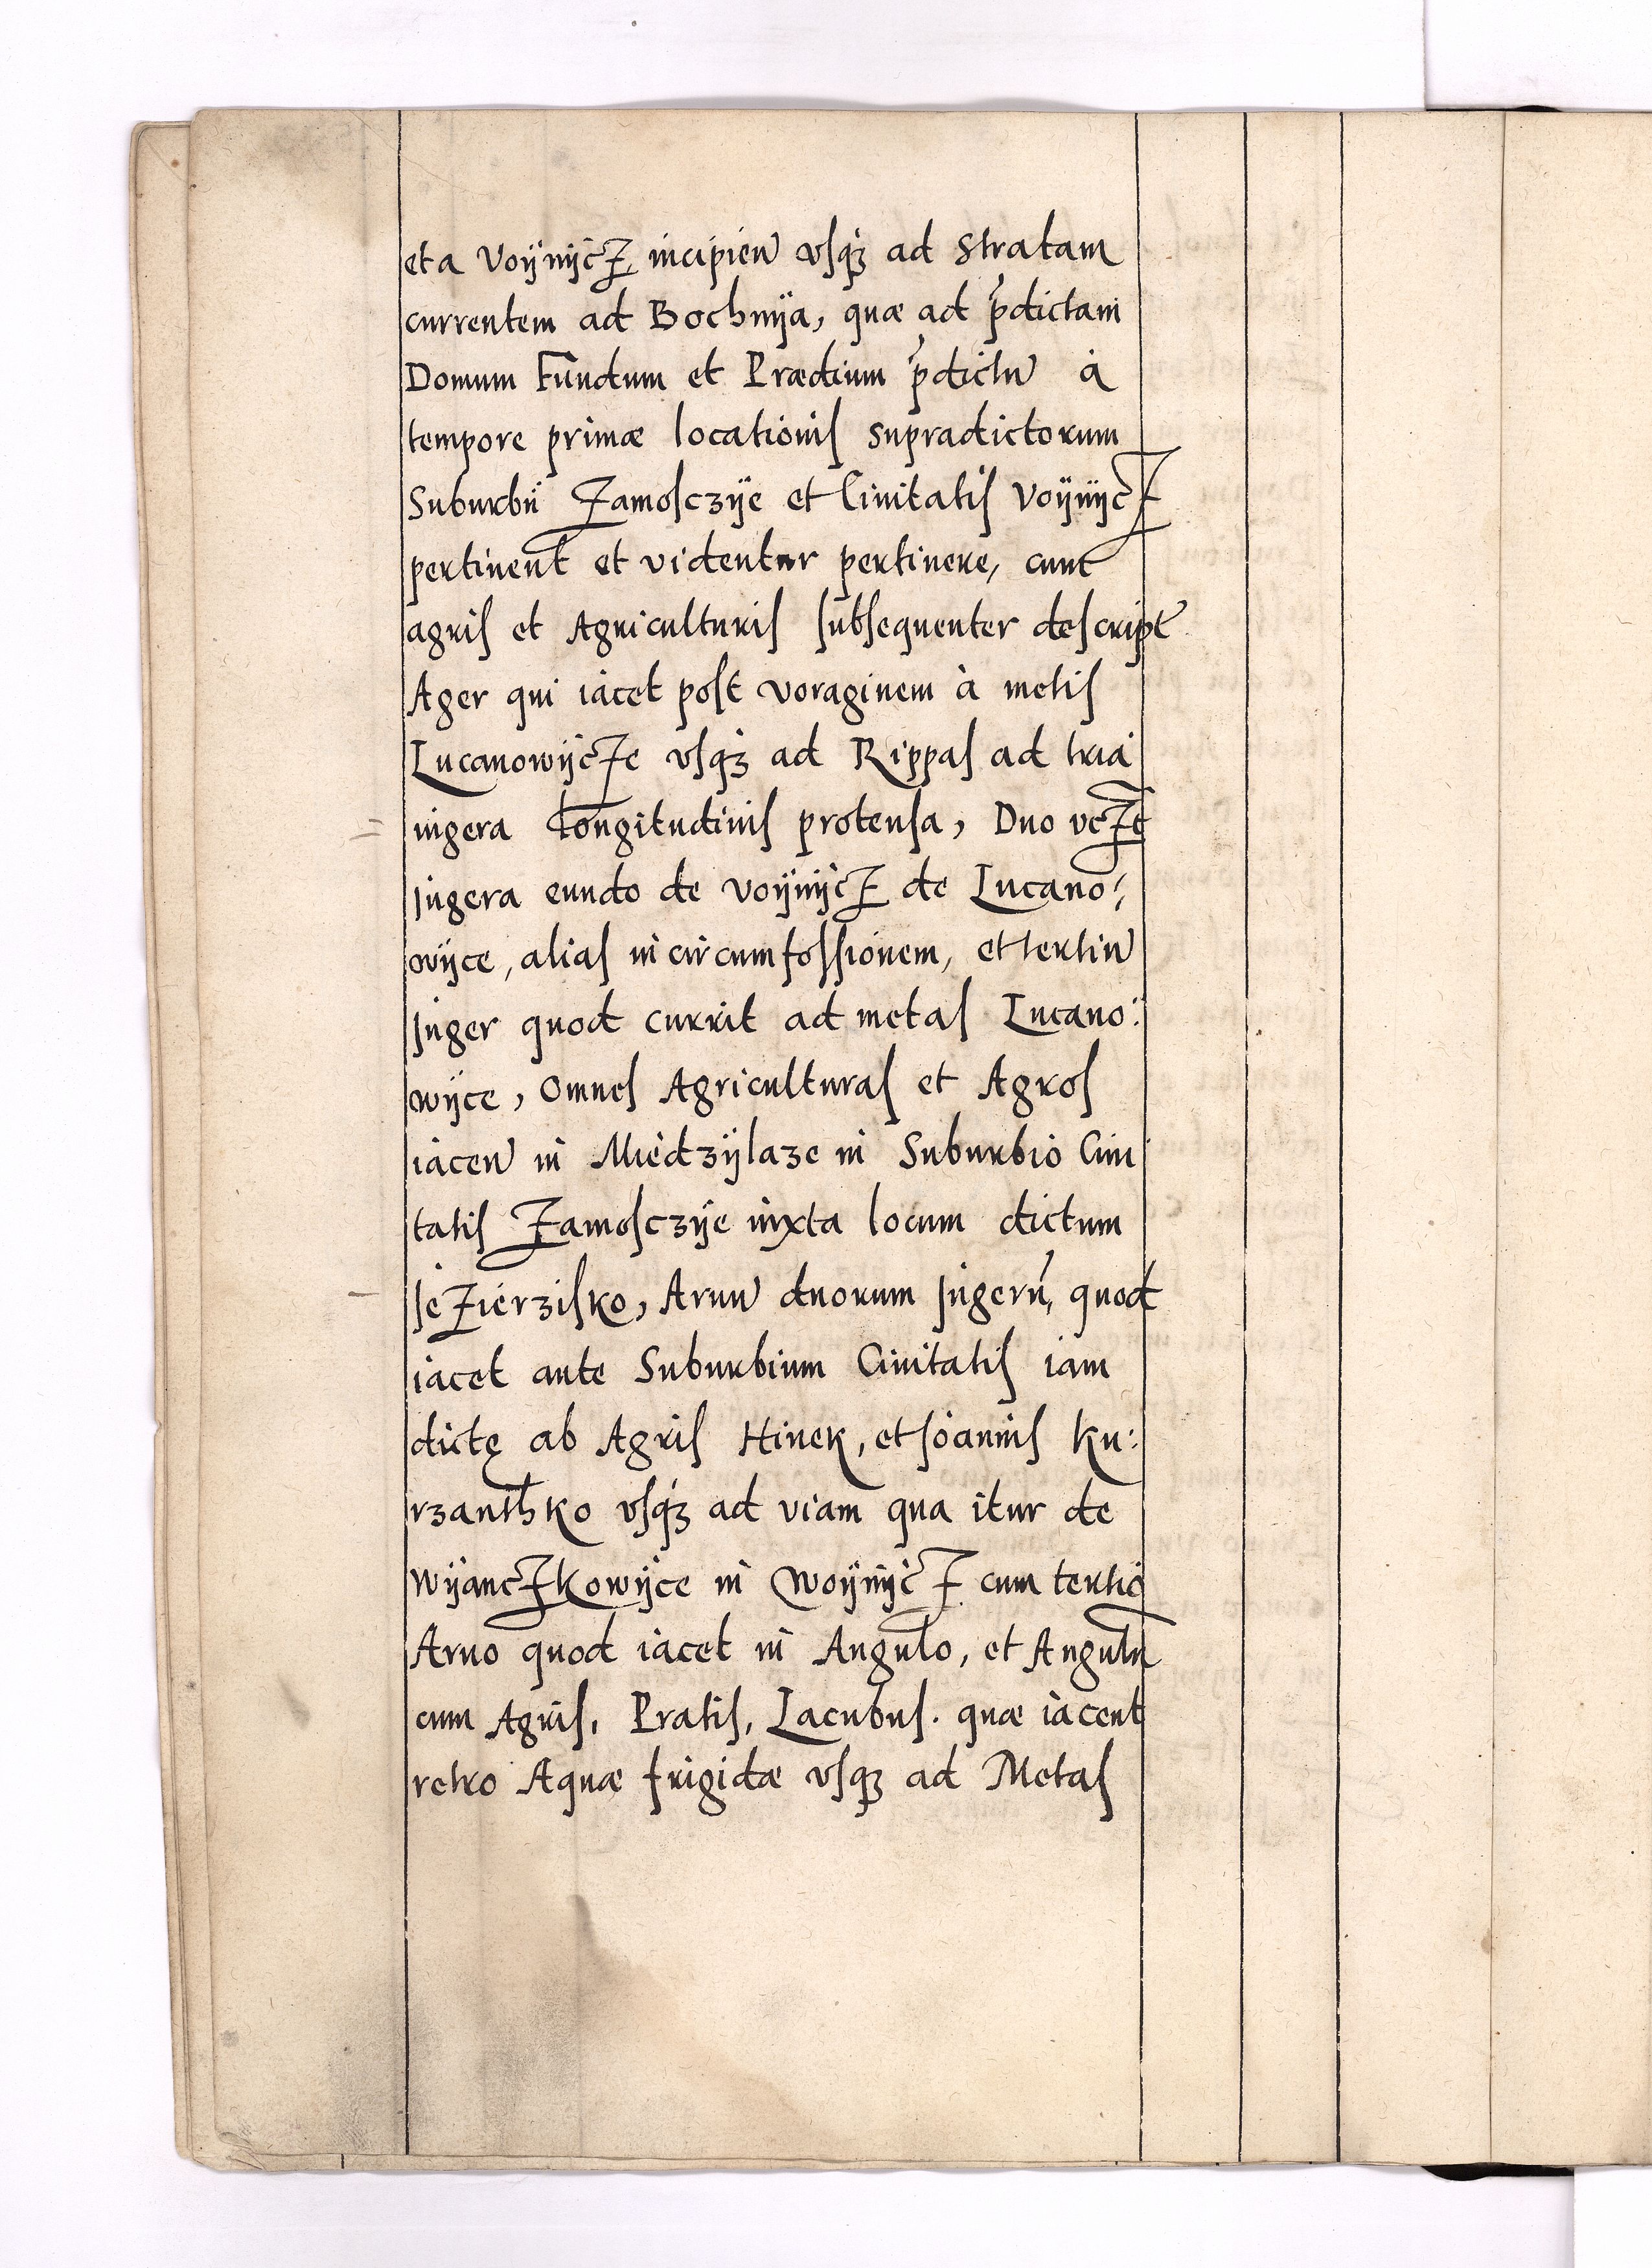 et a Voÿnÿcz incipien̄ vsq₃ ad Stratam
currentem ad Bochnÿa, quæ ad p̄dictam
Domum Fundum et Prædium p̄dictū à
tempore primæ locationis supradictorum
Suburbÿ Zamosczÿe et Ciuitatis Voÿnÿcz
pertinent et videntur pertinere, cum
agris et Agriculturis subsequenter descript̄
Ager qui iacet post voraginem à metis
Lucanowÿcze vsq₃ ad Rippas ad tria
iugera longitudinis protensa, Duo vczt
Jugera eundo de Voÿnÿcz de Lucano:
wÿce, alias in circumfossionem, et tertiū
Juger quod currit ad metas Lucano:
wÿce, Omnes Agriculturas et Agros
iacen̄ in Miedzÿlaze in Suburbio Ciui
tatis Zamosczÿe iuxta locum dictum
Jezierzisko, Aruū duorum Jugerū, quod
iacet ante Suburbium Ciuitatis iam
dictę ab Agris Hinek, et Joannis Ku:
rzanthko vsq₃ ad viam qua itur de
Wÿanczkowÿce in Woÿnÿcz cum tertio
Aruo quod iacet in Angulo, et Angulū
cum Agris, Pratis, Lacubus. quæ iacent
retro Aquæ frigidæ vsq₃ ad Metas